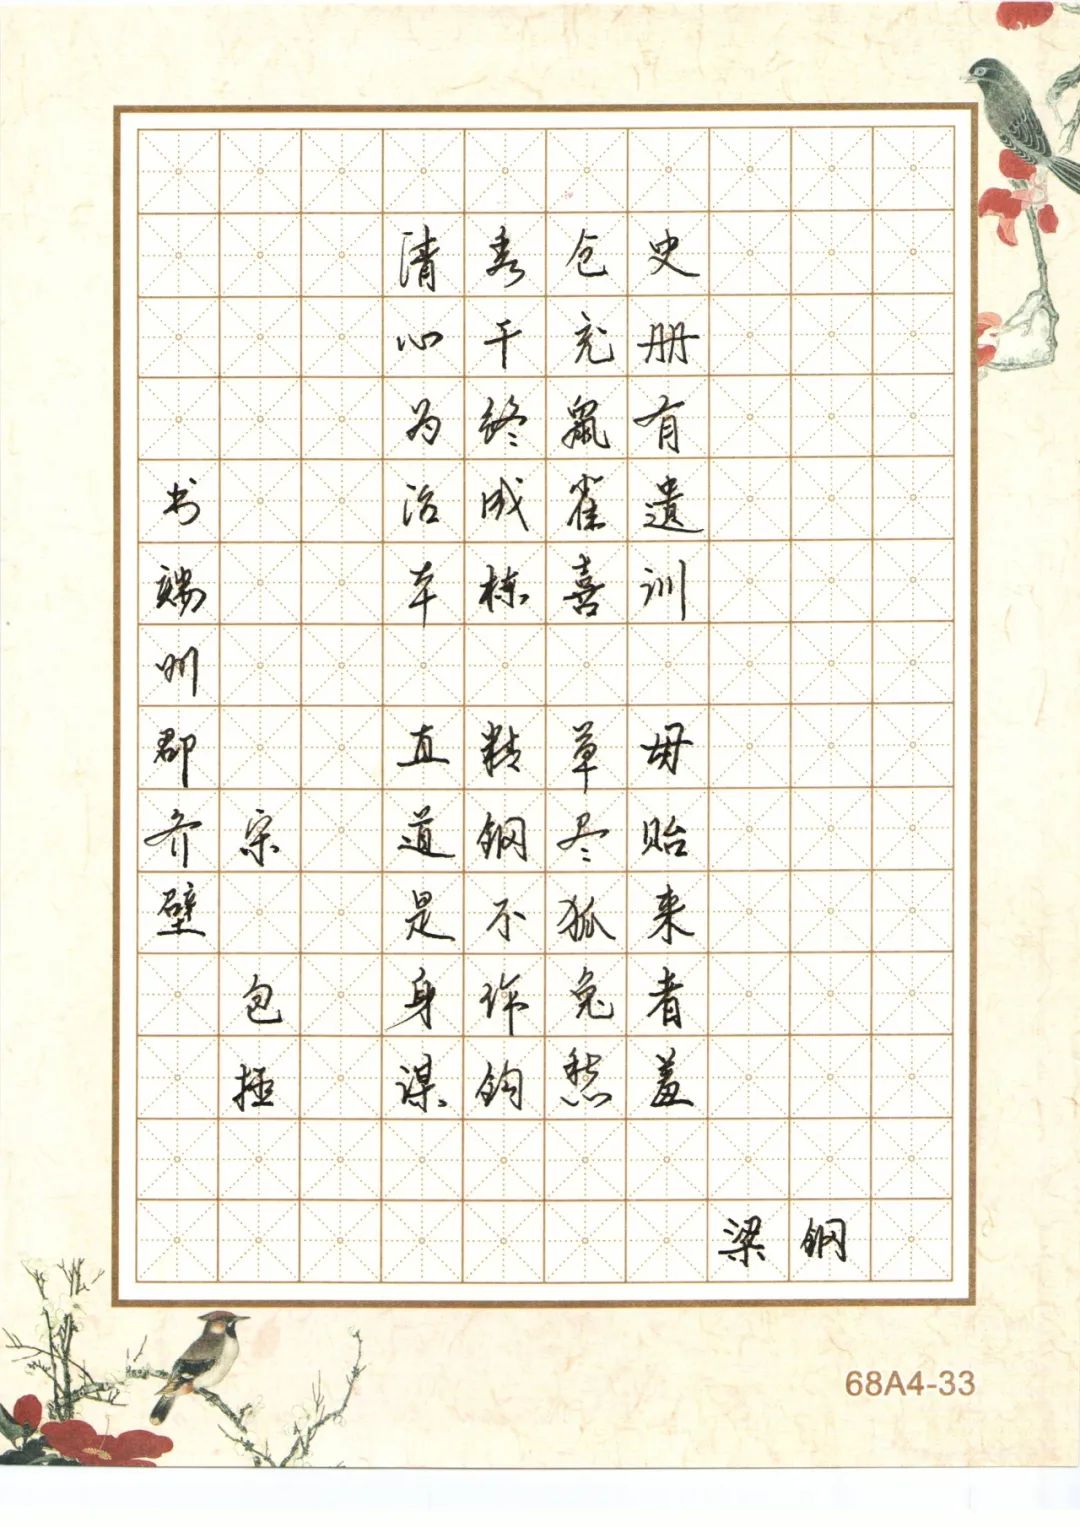 书端州郡齐壁
宋 包拯
清心为治本 直道是身谋
秀干终成栋 精钢不作钩
仓充鼠雀喜 草尽狐兔愁
史册有遗训 毋贻来者羞
梁钢
68A4-33